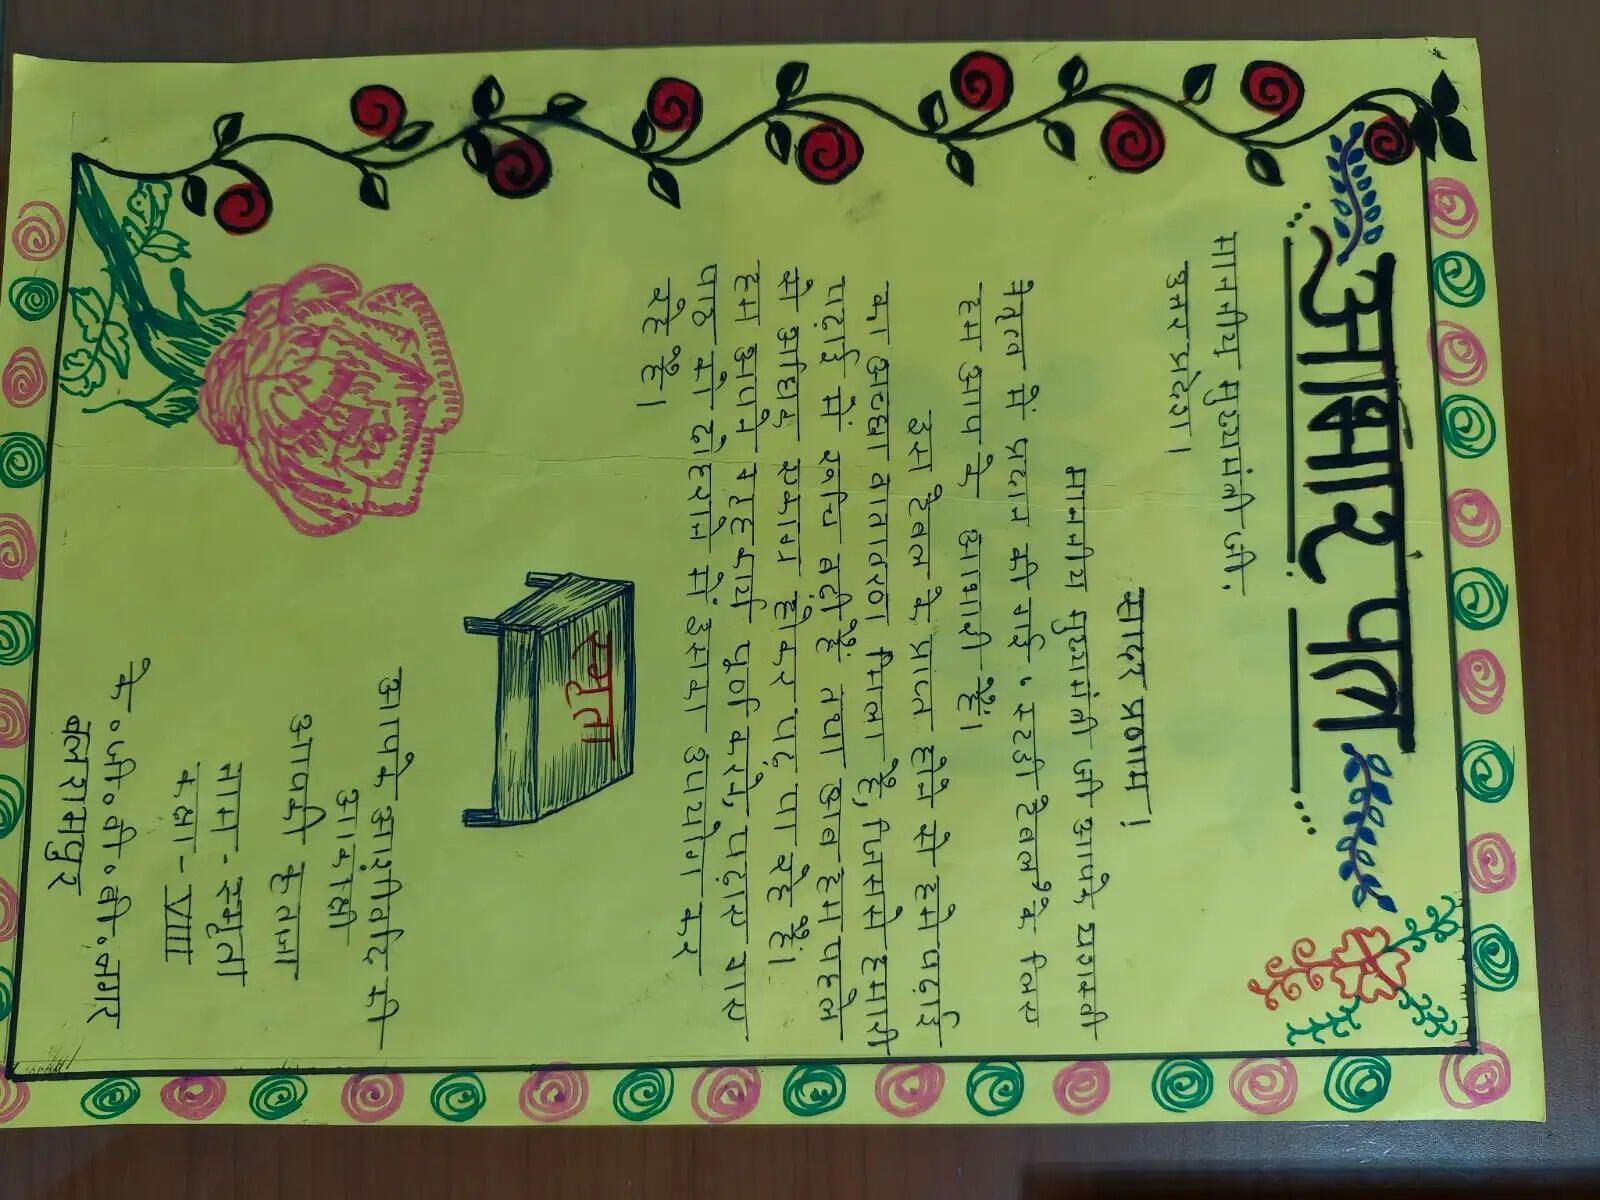 आभार पत्र
माननीय मुख्यमंत्री जी,
उत्तर प्रदेश।
सादर प्रणाम!
माननीय मुख्यमंत्री जी आपके यशस्वी
नेतृत्व में प्रदान की गई, स्टडी टेबल के लिए
हम आप के आभारी हैं।
इस टेबल के प्राप्त होने से हमे पढ़ाई
का अच्छा वातावरण मिला है, जिससे हमारी
पढ़ाई में रूचि बढ़ी है तथा अब हम पहले
से अधिक एकाग्र होकर पढ़ पा रहे हैं।
हम अपने गृहकार्य पूर्ण करने, पढ़ाए गए
पाठ को दोहराने में इसका उपयोग कर
रहे है।
स्मृता
आपके आर्शीवाद की
आकांक्षी
आपकी कृतज्ञ
नाम - स्मृता
कक्षा - VIII
के०जी०बी०वी०नगर
बलरामपुर